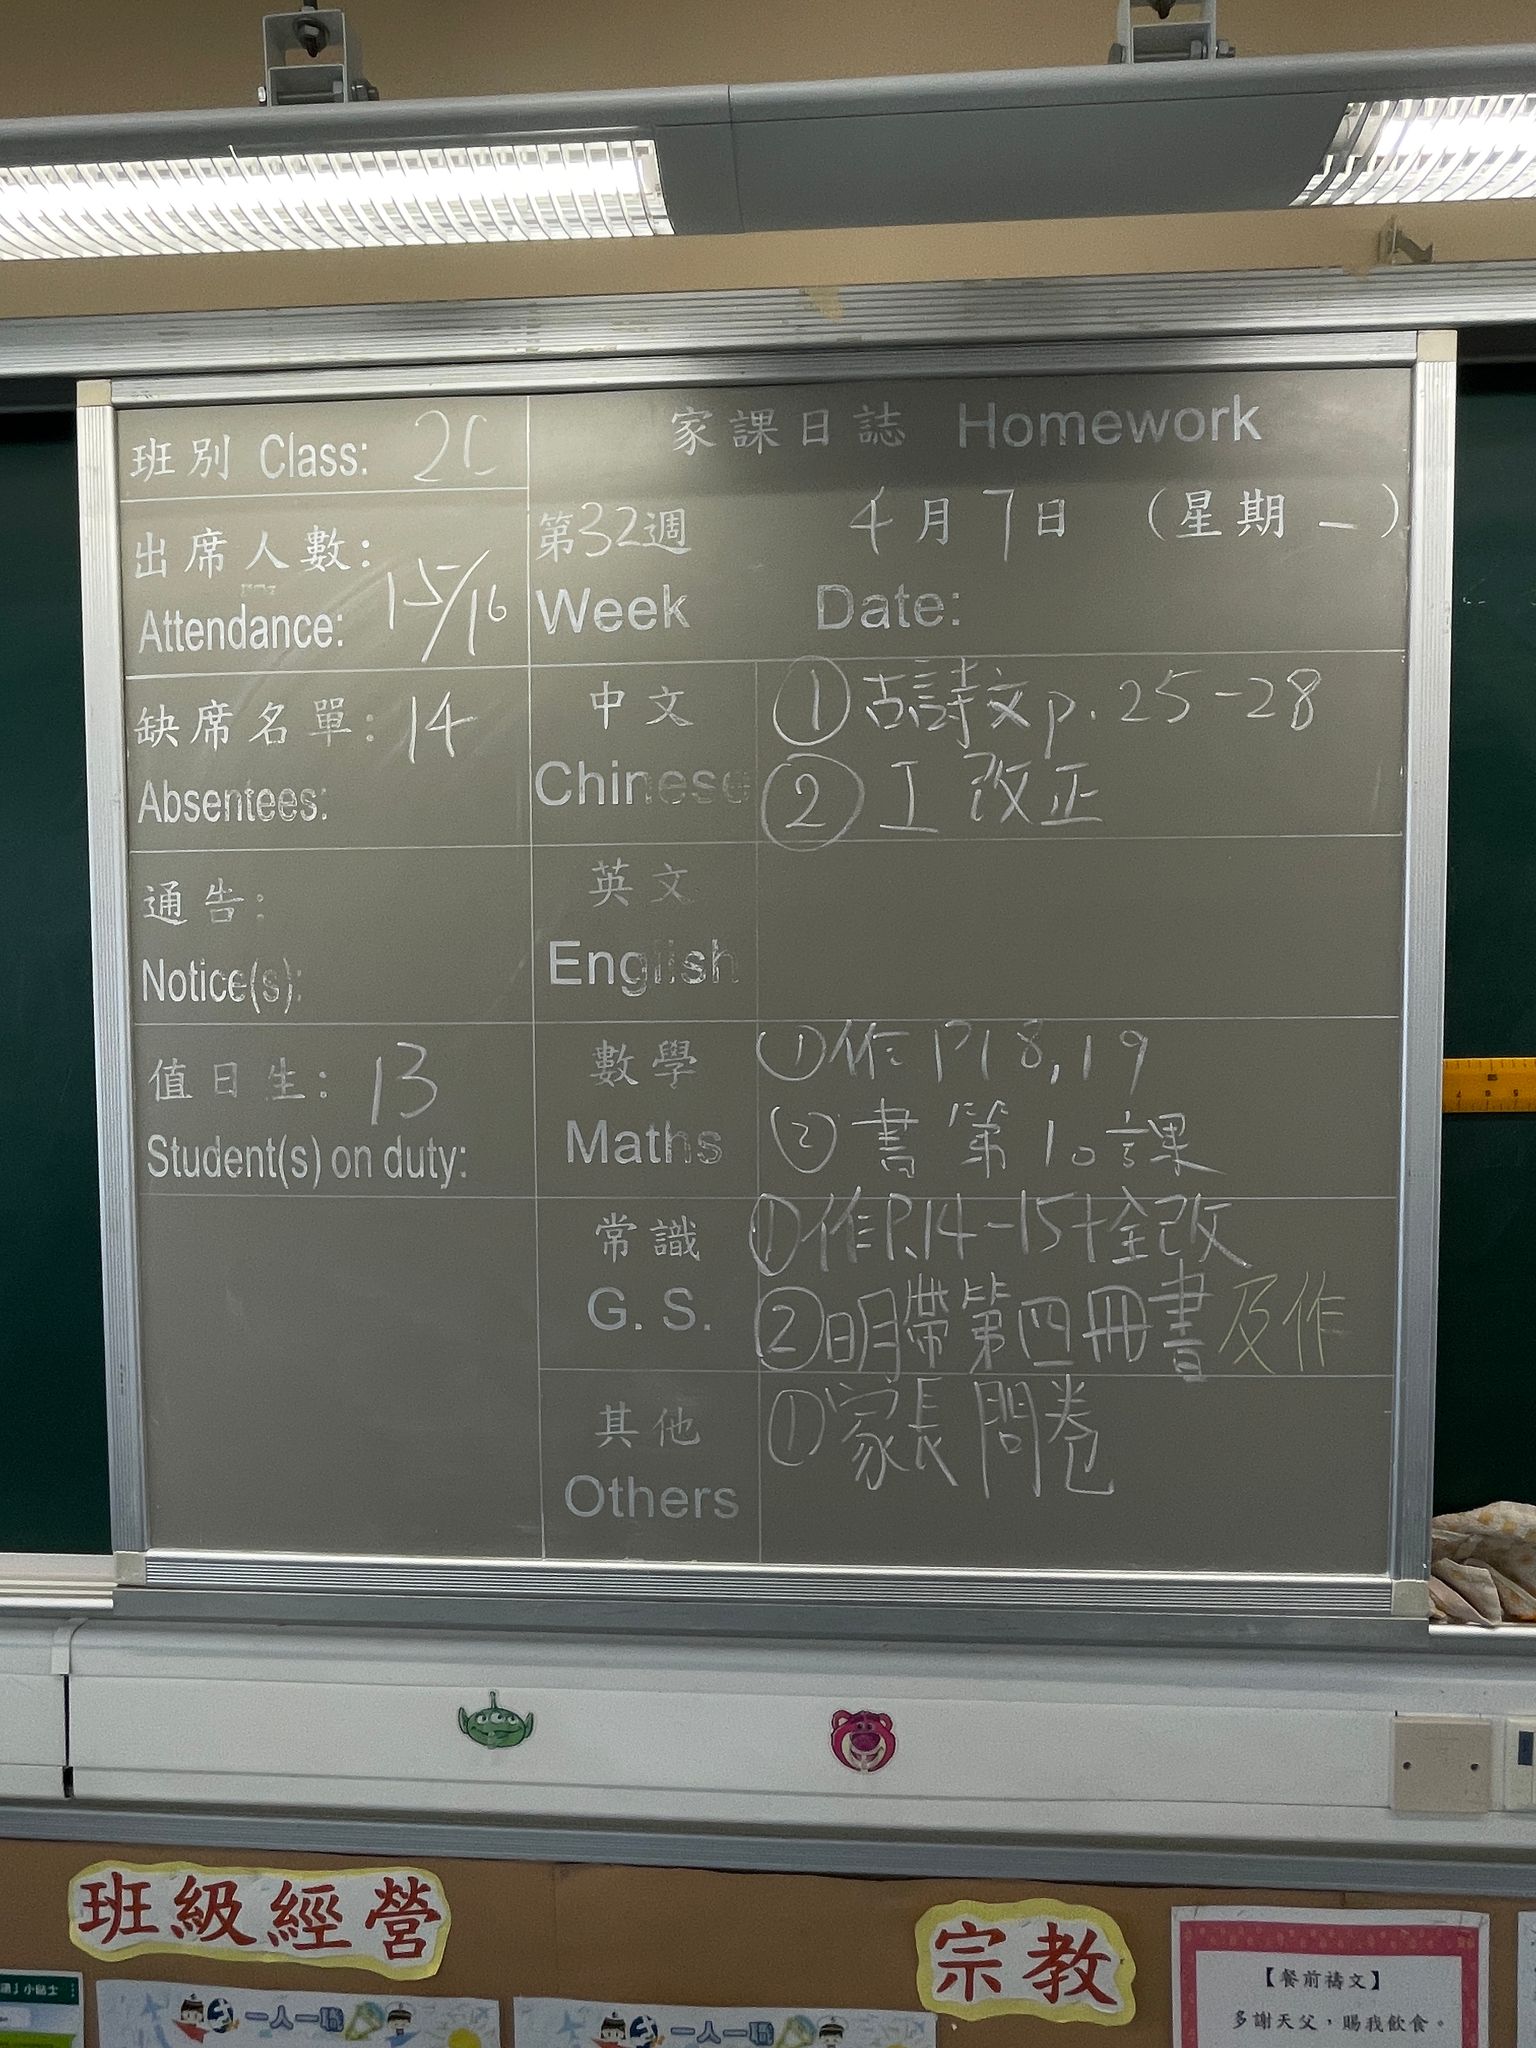 班別 Class: 2C
出席人數:
Attendance: 15/16
缺席名單: 14
Absentees:
通告:
Notice(s):
值日生: 13
Student(s) on duty:
家課日誌 Homework
第32週 4月7日 (星期一)
Week Date:
中文 ①古詩文p.25-28
Chinese ②工 改正
英文
English
數學 ①作P18,19
Maths ②書第10課
常識 ①作P.14-15+全改
G. S. ②明帶第四冊書及作
其他 ①家長問卷
Others
班級經營
宗教
【餐前禱文】
多謝天父,賜我飲食。
小貼士
一人一職
一人一職